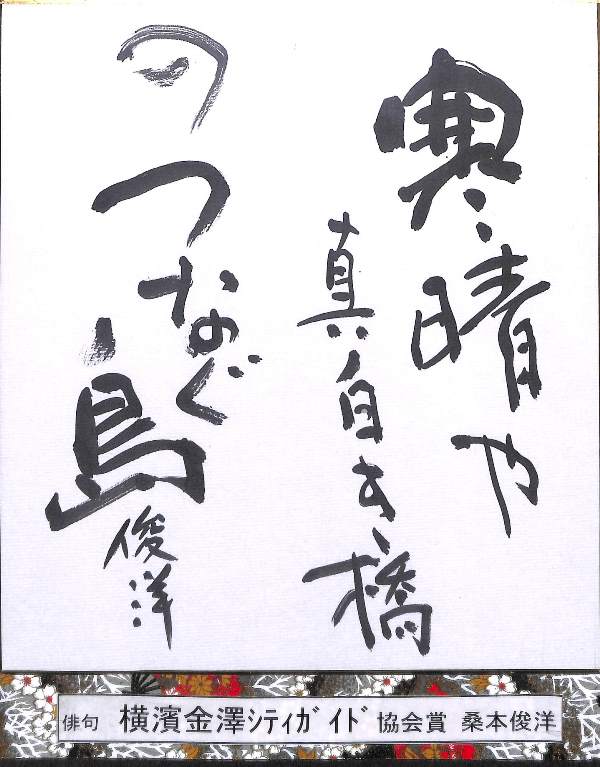 寒晴や
真白き橋
のつなぐ
島
俊洋
俳句 横濱金澤ｼﾃｨｶﾞｲﾄﾞ協会賞 桑本俊洋